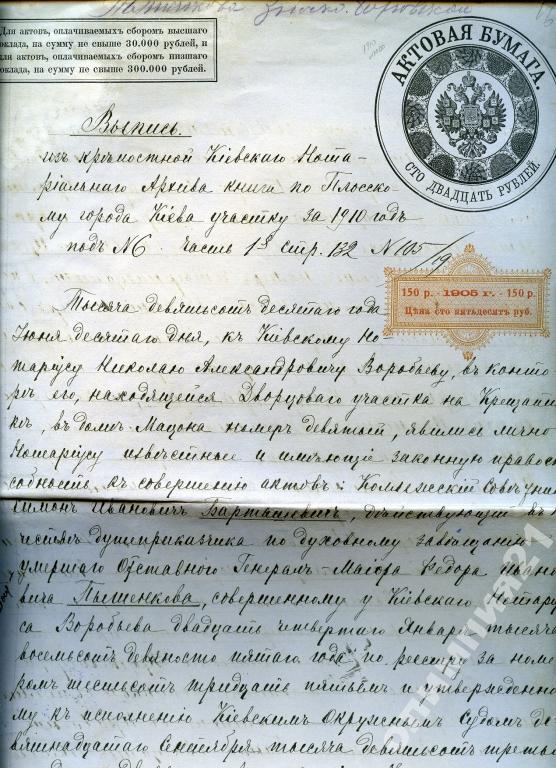 Для актовъ, оплачиваемыхъ сборомъ высшаго
оклада, на сумму не свыше 30.000 рублей, и
для актовъ, оплачиваемыхъ сборомъ низшаго
оклада, на сумму не свыше 300.000 рублей.
АКТОВАЯ БУМАГА.
СТО ДВАДЦАТЬ РУБЛЕЙ.
Выпись
изъ крѣпостной Кіевскаго Нота-
ріальнаго Архива книги по Плосско-
му города Кіева участку за 1910 годъ
подъ №6. часть 1я стр. 132 N 105/19
150 р. - 1905 г. - 150 р.
Цѣна сто пятьдесятъ руб.
Тысяча девятьсотъ десятаго года
Іюня десятаго дня, къ Кіевскому Но-
таріусу Николаю Александровичу Воробьеву, въ конто-
рѣ его, находящейся Дворцоваго участка на Крещати-
кѣ, въ домѣ Мацона номеръ девятый, явились лично
Нотаріусу извѣстные и имѣющіе законную правоспо-
собность къ совершенію актовъ: Коллежскій Совѣтникъ
Симонъ Ивановичъ Барташевичъ, дѣйствующій въ ка-
чествѣ душеприказчика по духовному завѣщанію
умершаго Отставного Генералъ-Маіора Ѳедора Ивано-
вича Пышенкова, совершенному у Кіевскаго Нотаріу-
са Воробьева двадцать четвертаго Января тысяча
восемьсотъ девяносто пятаго года по реестру за номе-
ромъ шестьсотъ тридцать пятымъ и утвержденно-
му къ исполненію Кіевскимъ Окружнымъ Судомъ де-
вятнадцатаго Сентября тысяча девятьсотъ третьяго
олимпия21